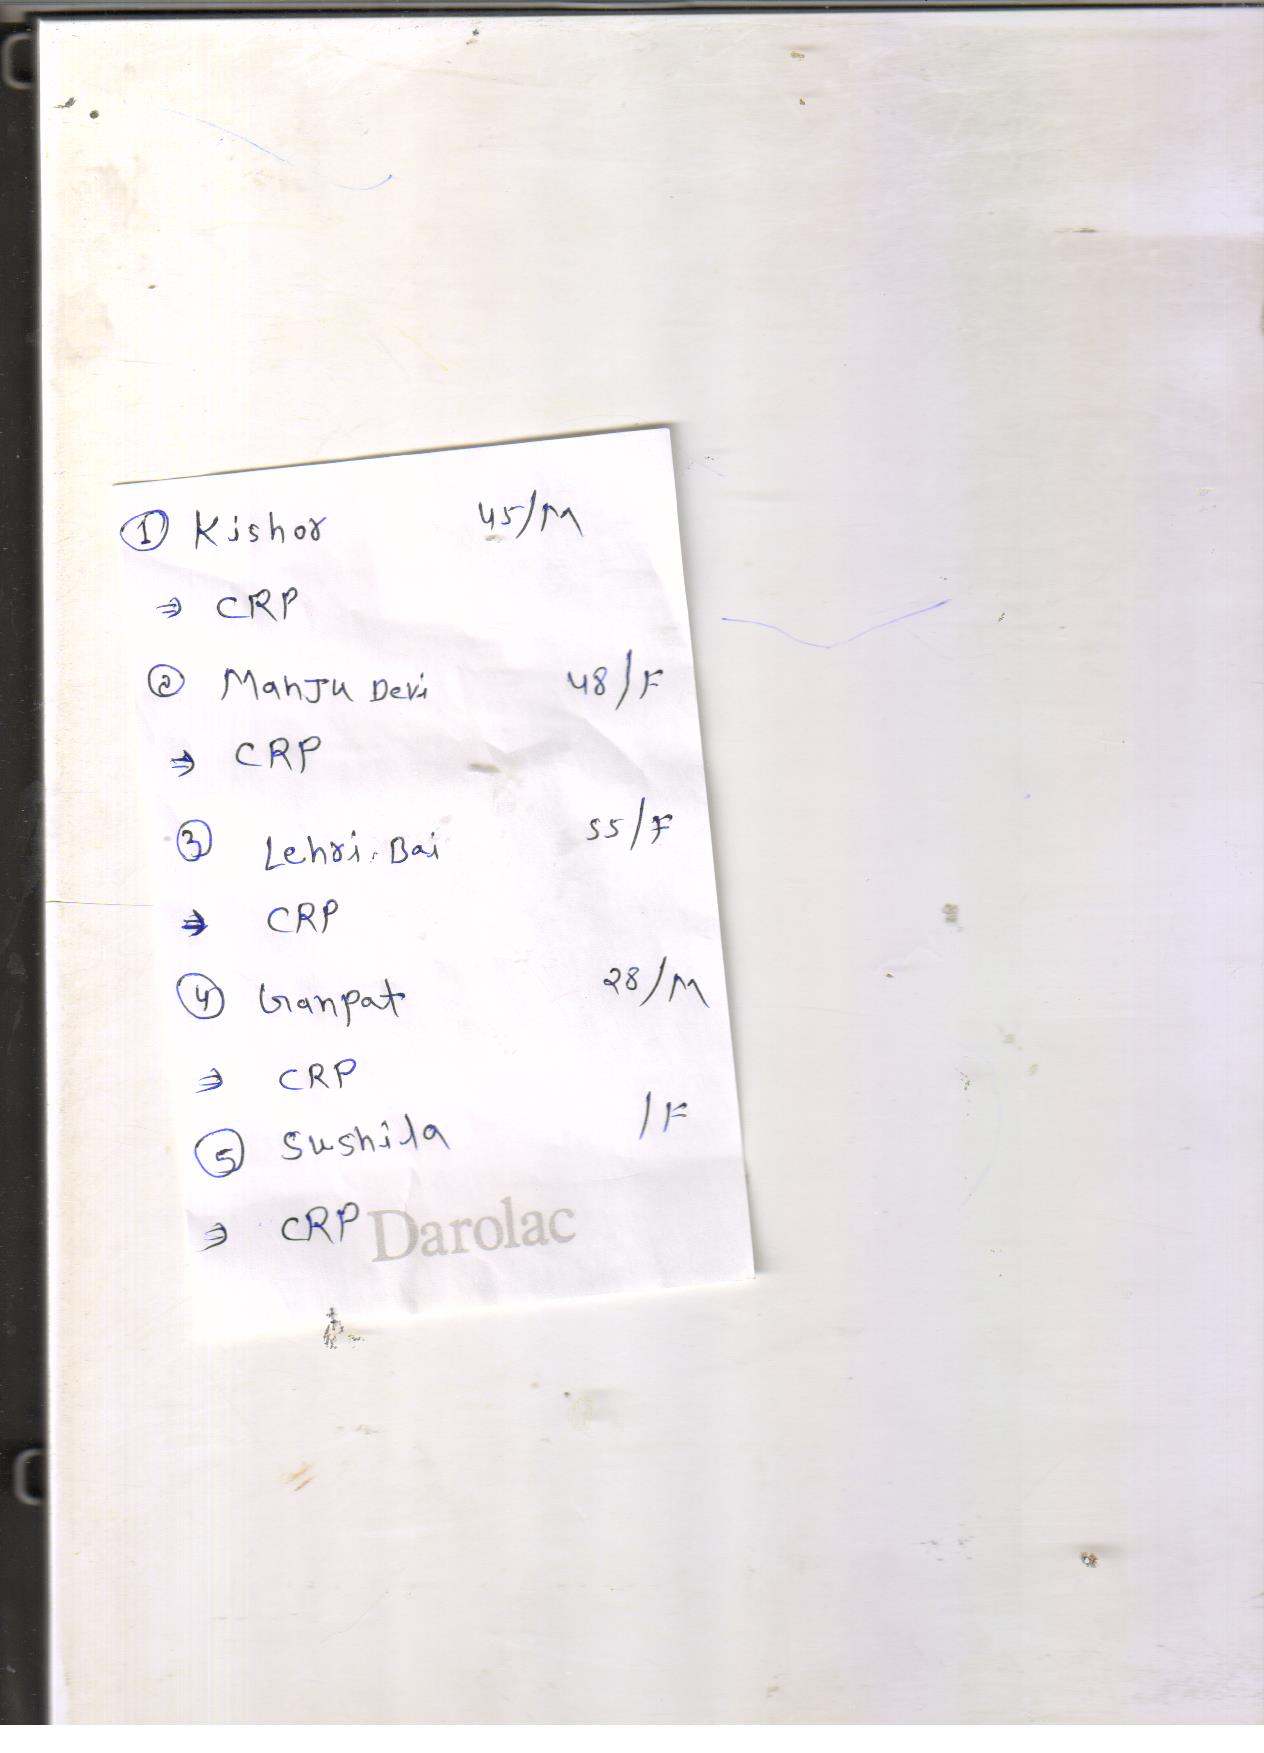 ① Kishor 45/M
⇒ CRP
② Manju Devi 48/F
⇒ CRP
③ Lehri Bai 55/F
⇒ CRP
④ Ganpat 28/M
⇒ CRP
⑤ Sushila /F
⇒ CRP
Darolac